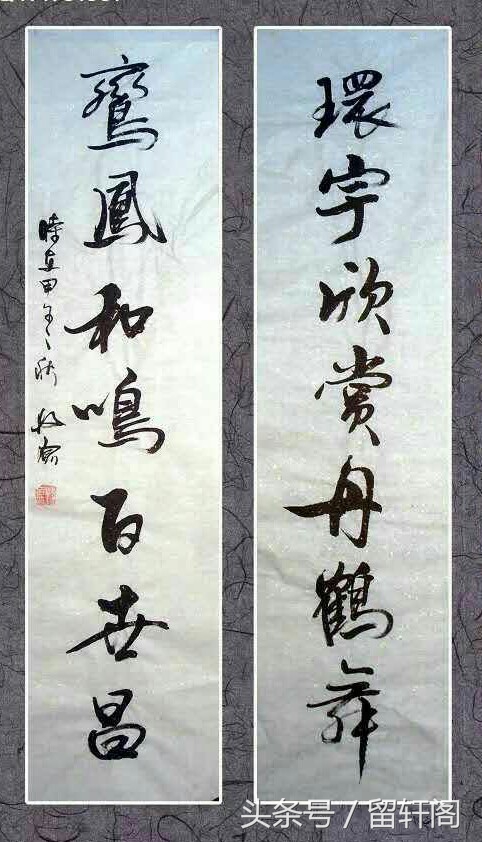 環宇欣赏丹鶴舞
鸞鳳和鳴百世昌
時在甲午之秋
头条号 / 留轩阁